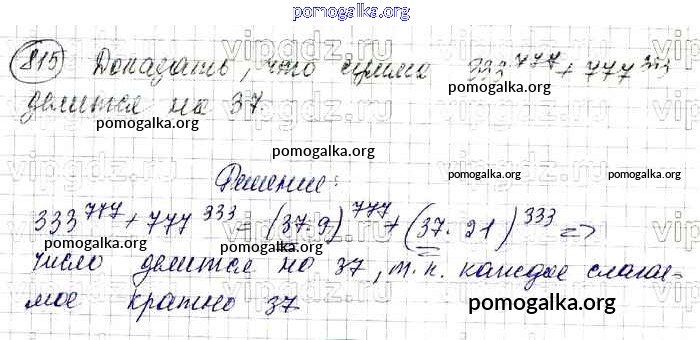 pomogalka.org
815 Доказать, что сумма 333^777 + 777^333
делится на 37.
pomogalka.org pomogalka.org
pomogalka.org
vipgdz.ru
Решение:
pomogalka.org pomogalka.org
333^777 + 777^333 = (37·9)^777 + (37·21)^333 =>
число делится на 37, т.к. каждое слага-
емое кратно 37
pomogalka.org